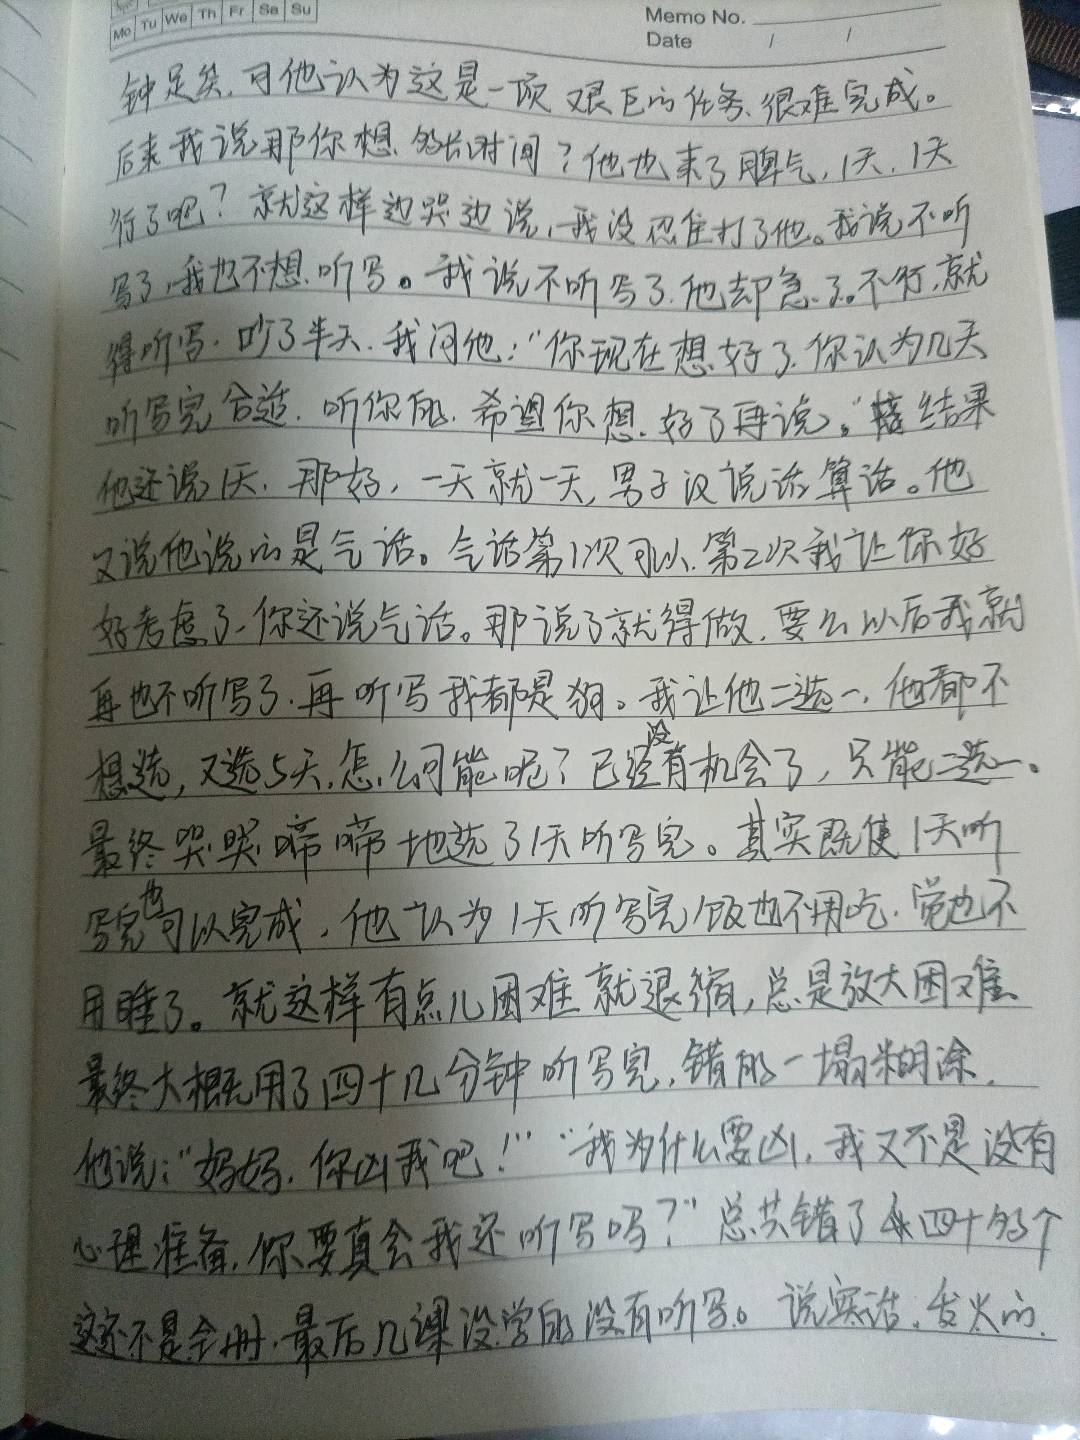 Mo Tu We Th Fr Sa Su
Memo No.
Date / /
钟足矣,可他认为这是一项艰巨的任务,很难完成。
后来我说那你想多长时间?他也来了脾气,1天,1天
行了吧?就这样边哭边说,我没忍住打了他。我说不听
写了,我也不想听写。我说不听写了,他却急了。不行,就
得听写,吵了半天,我问他:“你现在想好了,你认为几天
听写完合适,听你的,希望你想好了再说。”结果
他还说1天,那好,一天就一天,男子汉说话算话。他
又说他说的是气话。气话第1次可以,第2次我让你好
好考虑了,你还说气话。那说了就得做,要么以后我就
再也不听写了,再听写我都是狗。我让他二选一,他都不
想选,又选5天,怎么可能呢?已经没有机会了,只能二选一。
最终哭哭啼啼地选了1天听写完。其实既使1天听
写完也可以完成,他认为1天听写完饭也不用吃,觉也不
用睡了。就这样有点儿困难就退缩,总是放大困难
最终大概用了四十几分钟听写完,错的一塌糊涂,
他说:“妈妈,你凶我吧!”“我为什么要凶,我又不是没有
心理准备,你要真会我还听写吗?”总共错了四十多个
这还不是全册,最后几课没学的没有听写。说实话,发火的